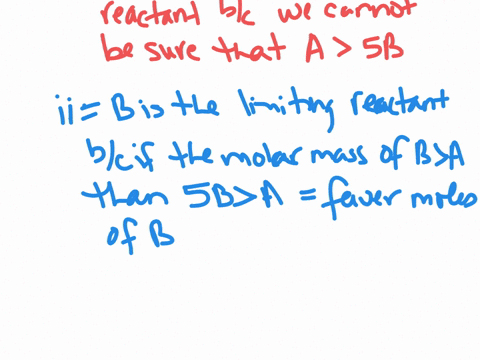 reactant b/c we cannot
be sure that A > 5B
ii = B is the limiting reactant
b/c if the molar mass of B>A
than 5B>A = fewer moles
of B